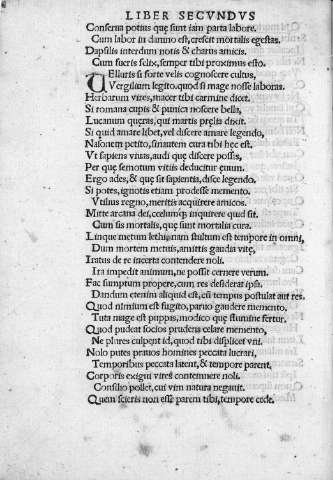 LIBER SECVNDVS
Conserua potius que sunt iam parta labore.
Cum labor in damno est, crescit mortalis egestas.
Dapsilis interdum notis & charus amicis.
Cum fueris felix, semper tibi proximus esto.
TElluris si forte velis cognoscere cultus,
Vergilium legito. quod si mage nosse laboras.
Herbarum vires, macer tibi carmine dixit.
Si romana cupis & punica noscere bella,
Lucanum queras, qui martis prelia dixit.
Si quid amare libet, vel discere amare legendo,
Nasonem petito, sin autem cura tibi hec est.
Vt sapiens viuas, audi que discere possis,
Per que semotum vitiis deducitur euum.
Ergo ades, & que sit sapientia, disce legendo,
Si potes, ignotis etiam prodesse memento.
Vtilius regno, meritis acquirere amicos.
Mitte arcana dei, celumq; inquirere quid sit.
Cum sis mortalis, que sunt mortalia cura.
Linque metum lethi, nam stultum est tempore in omni,
Dum mortem metuis, amittis gaudia vite,
Iratus de re incerta contendere noli.
Ira impedit animum, ne possit cernere verum.
Fac sumptum propere, cum res desiderat ipsa.
Dandum etenim aliquid est, cū tempus postulat aut res.
Quod nimium est fugito, paruo gaudere memento,
Tuta mage est puppis, modico que flumine fertur.
Quod pudeat socios prudens celare memento,
Ne plures culpent id, quod tibi displicet vni.
Nolo putes prauos homines peccata lucrari,
Temporibus peccata latent, & tempore parent.
Corporis exigui vires contemnere noli.
Consilio pollet, cui vim natura negauit.
Quem scieris non esse parem tibi, tempore cede.